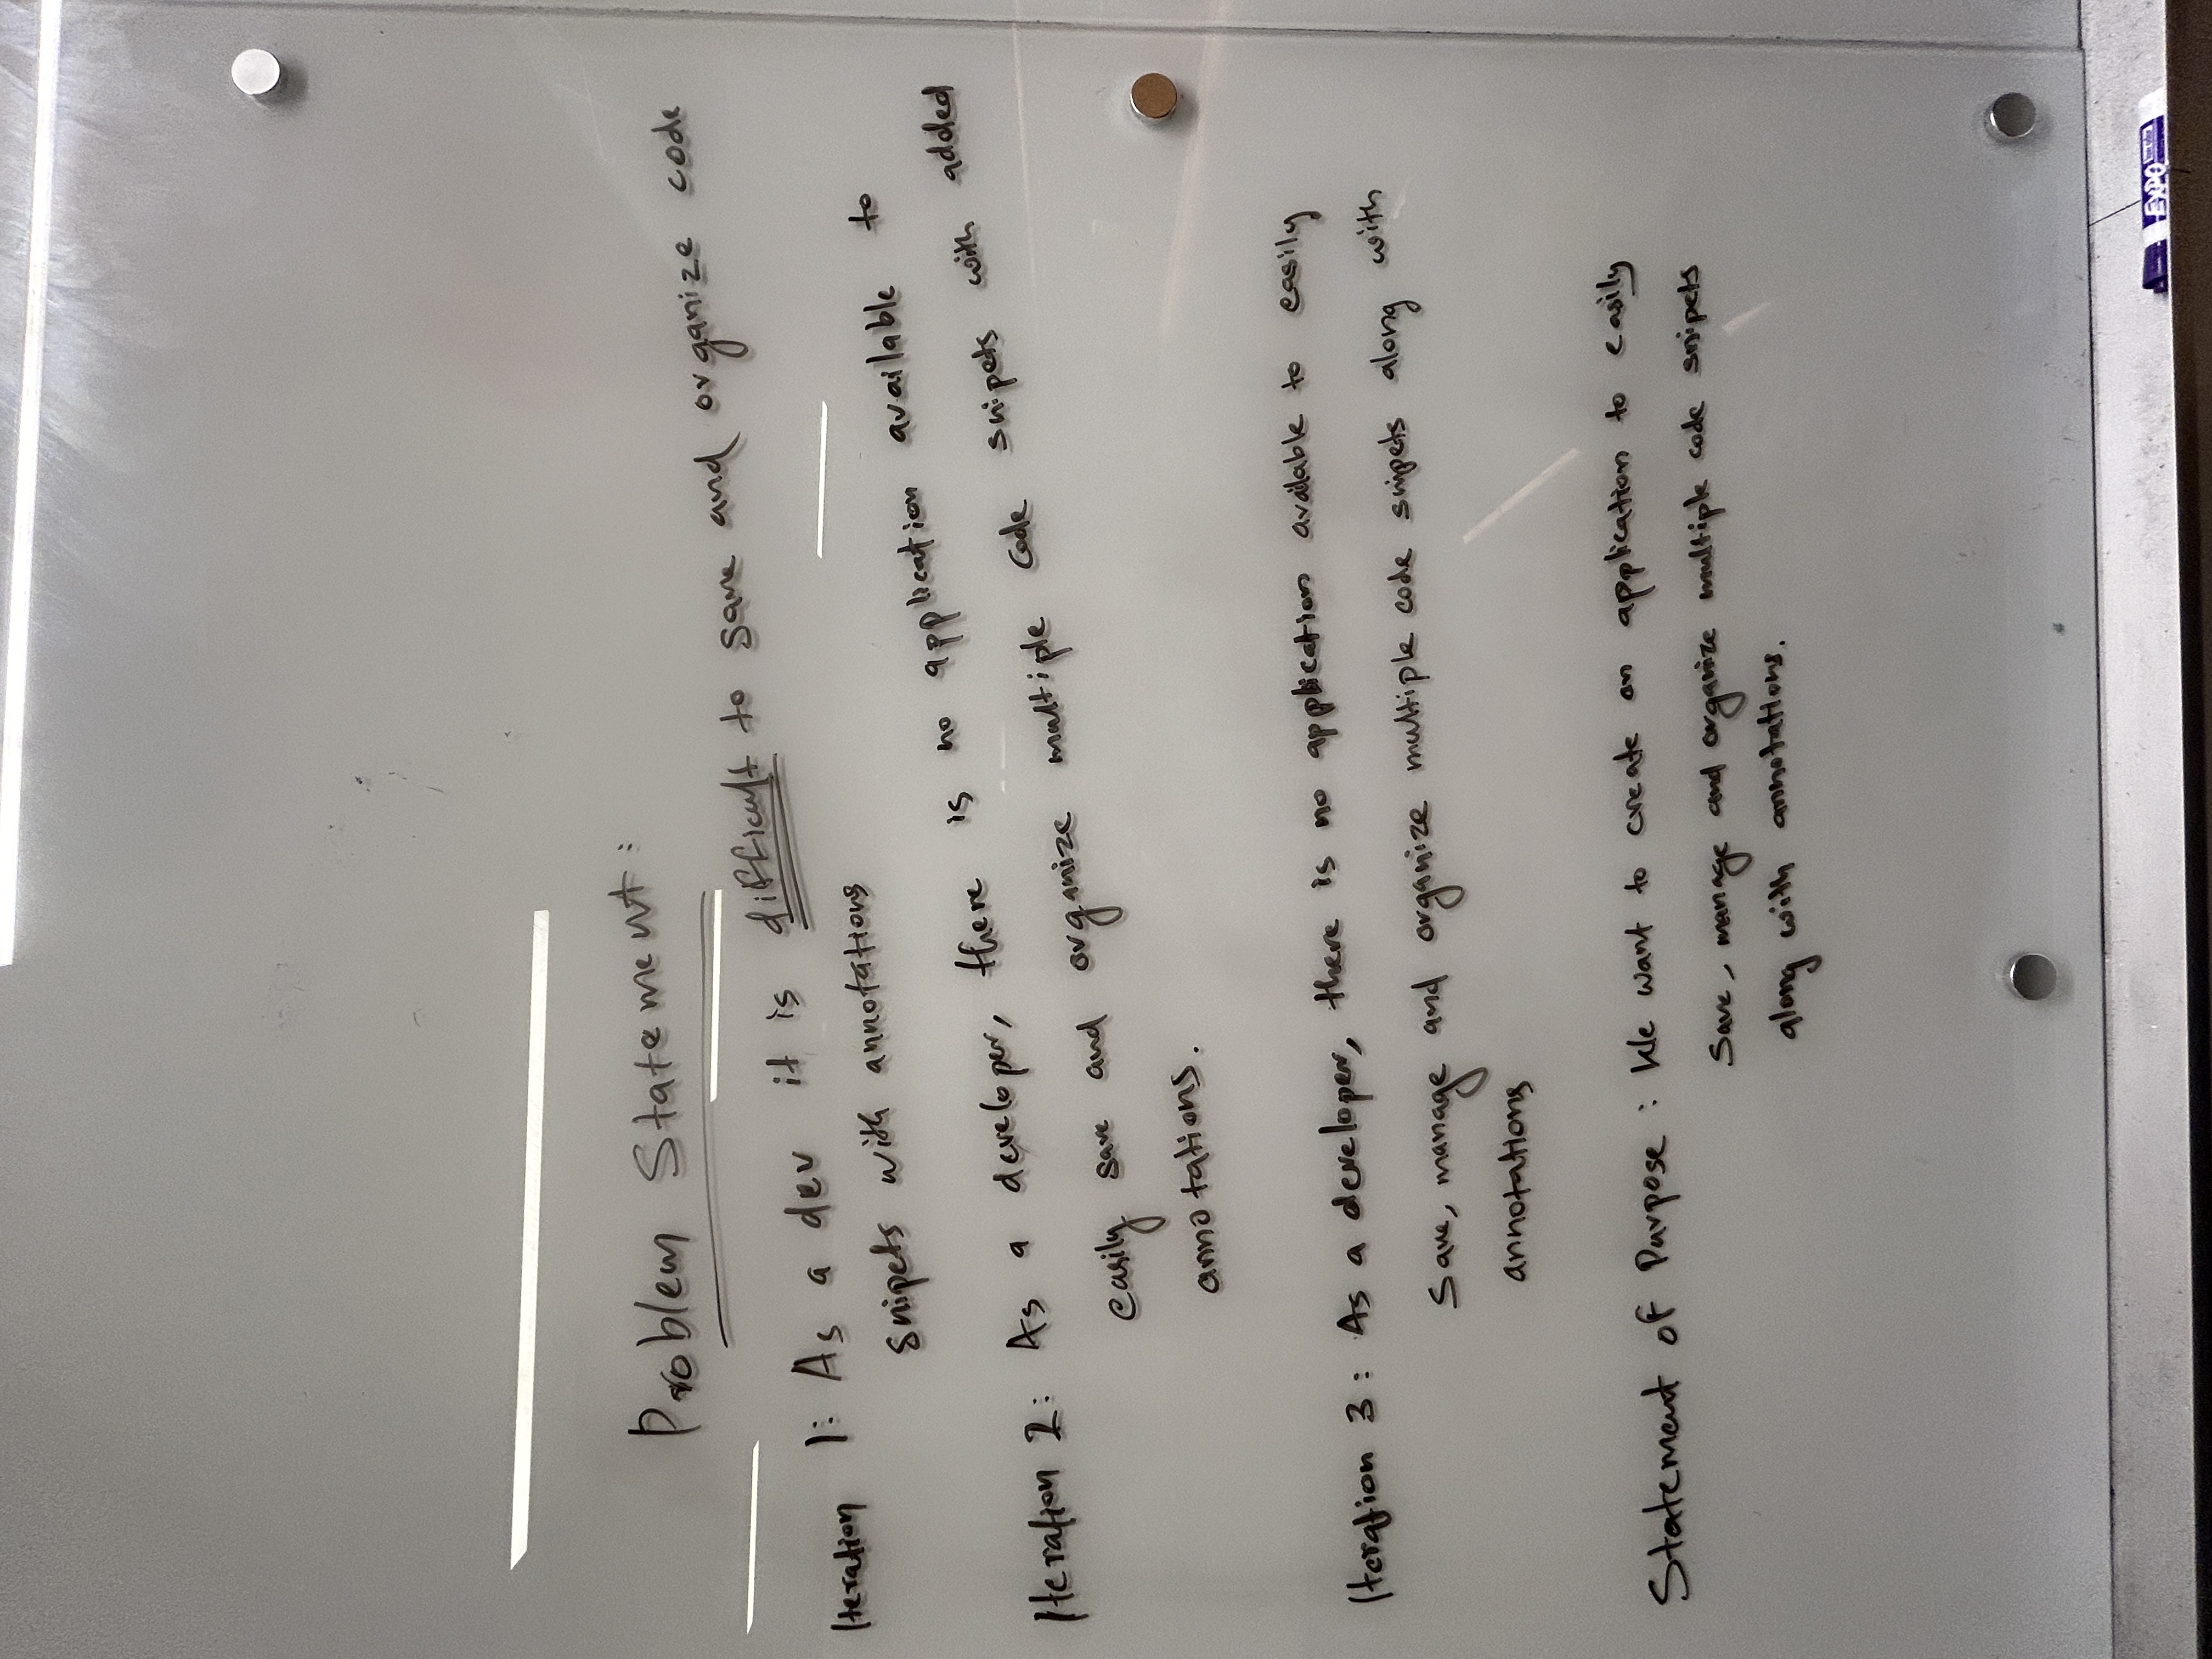 Problem Statement:
Iteration 1: As a dev it is difficult to save and organize code
snipets with annotations
Iteration 2: As a developer, there is no application available to
easily save and organize multiple code snipets with added
annotations.
Iteration 3: As a developer, there is no application available to easily
Save, manage and organize multiple code snipets along with
annotations
Statement of Purpose: We want to create an application to easily
Save, manage and organize multiple code snipets
along with annotations.
EXPO